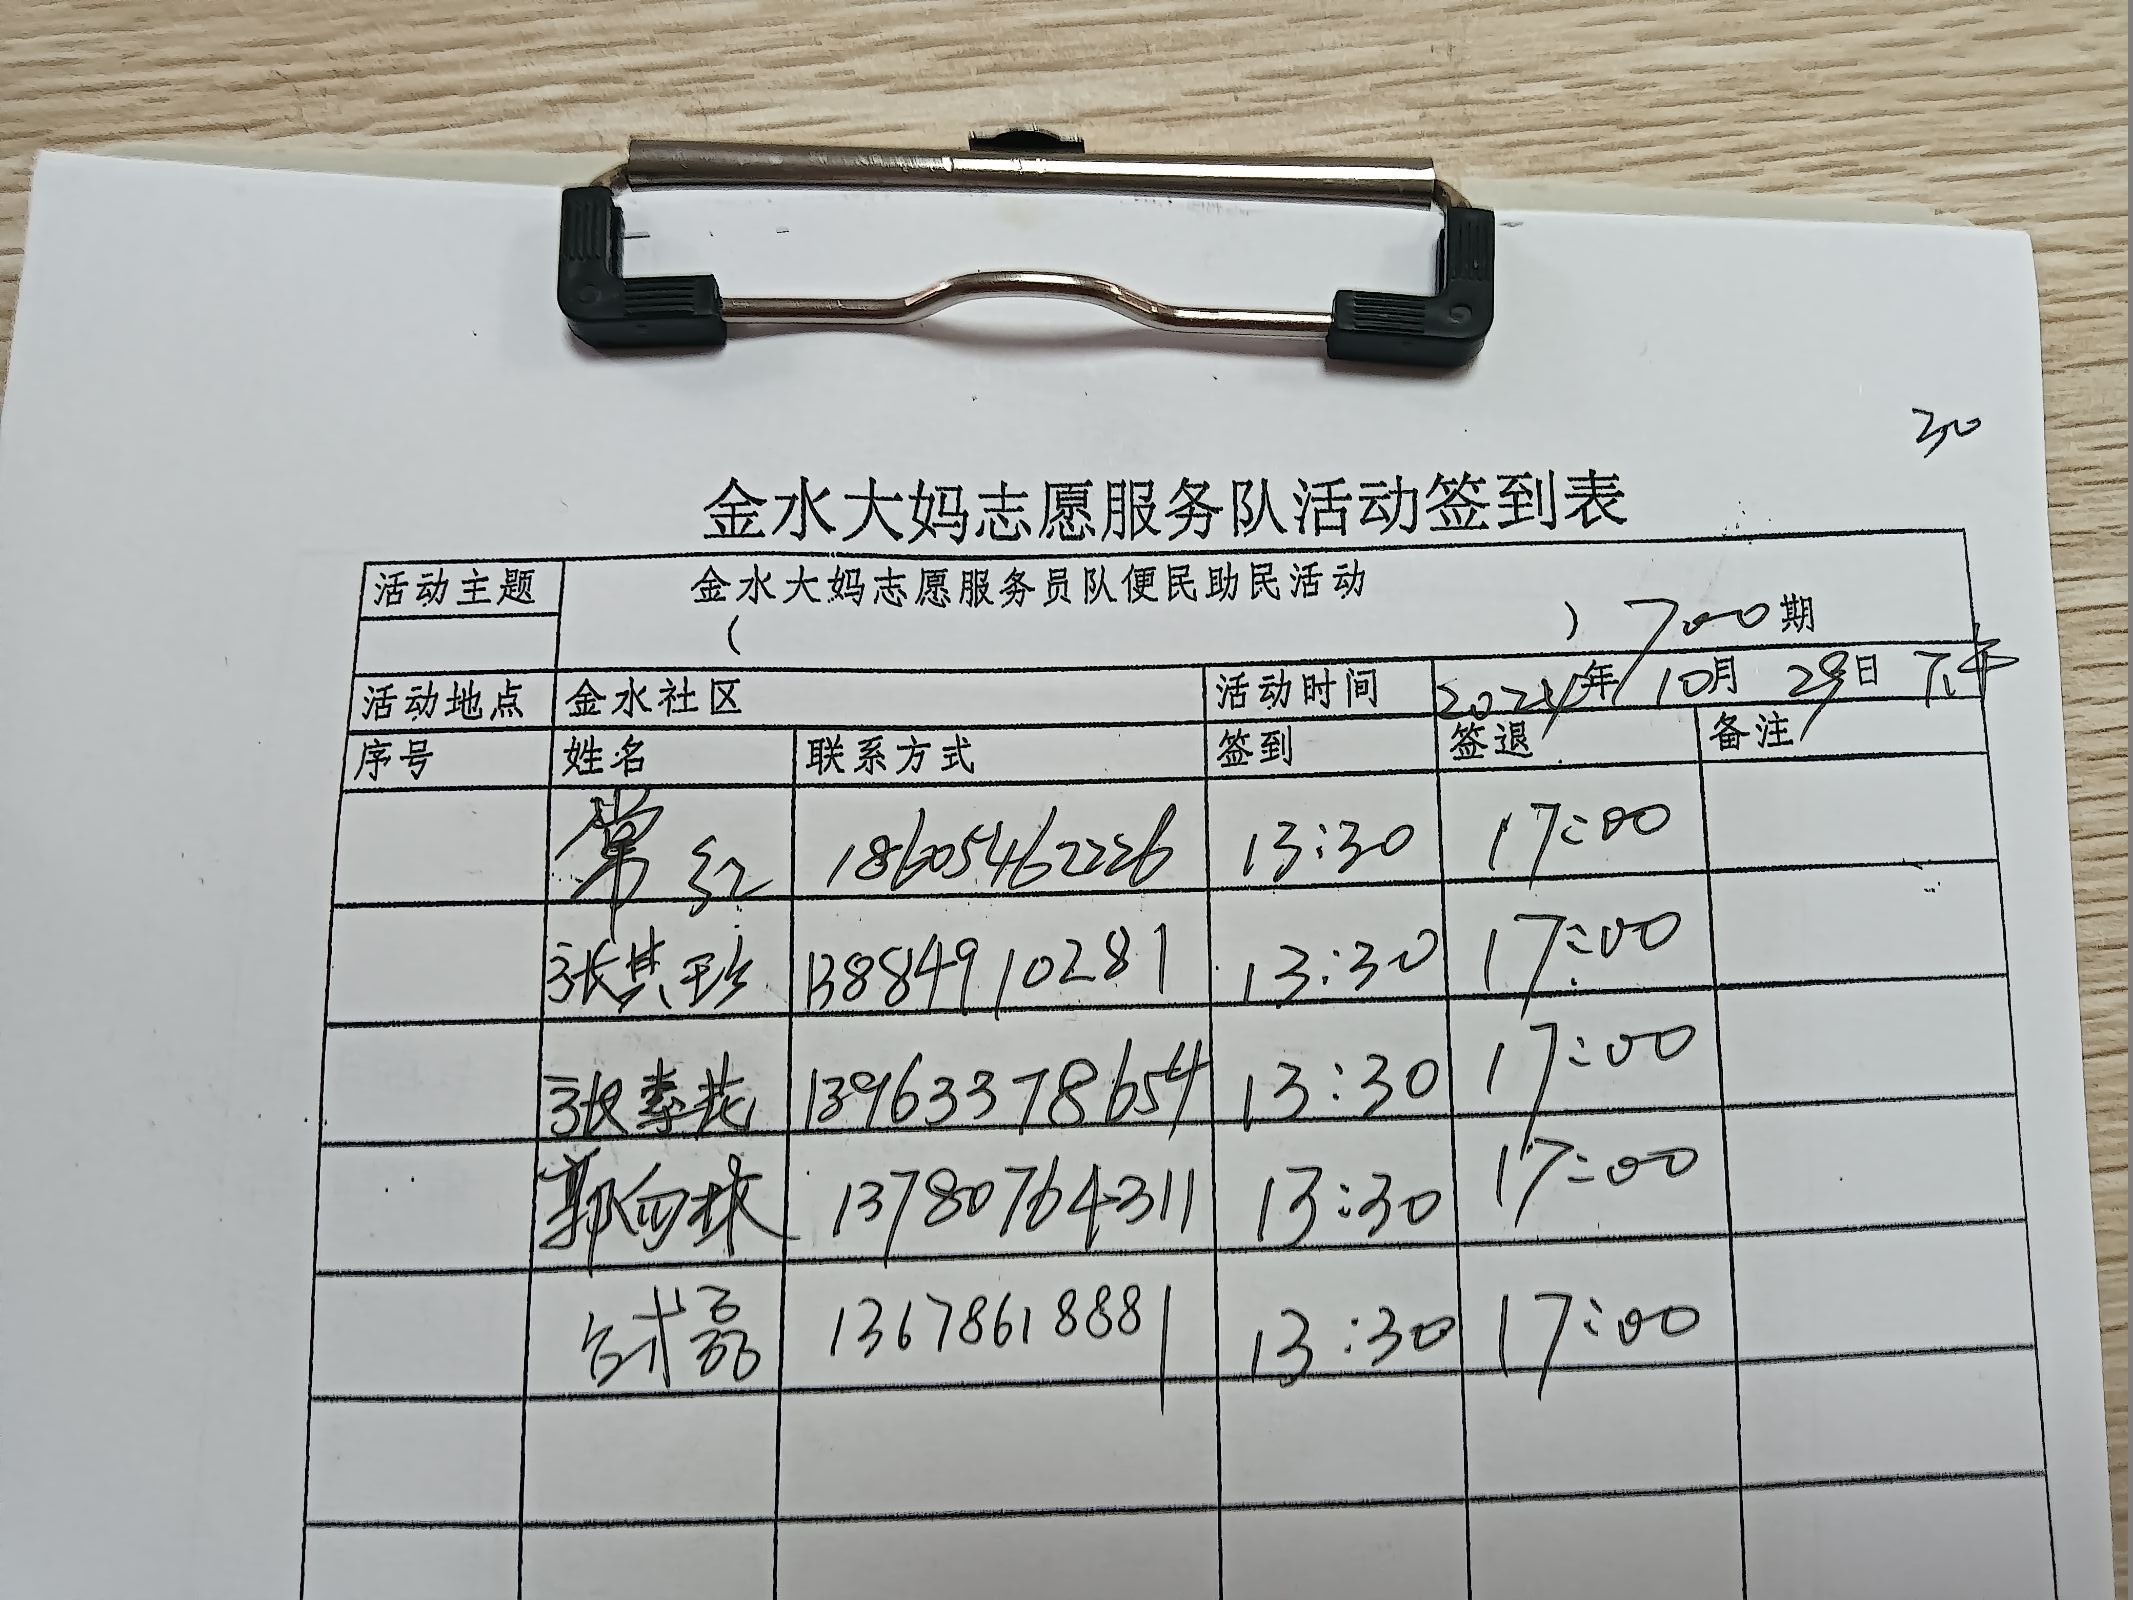 30
金水大妈志愿服务队活动签到表
活动主题 金水大妈志愿服务员队便民助民活动
( ) 700期
活动地点 金水社区 活动时间 2024年10月29日 下午
序号 姓名 联系方式 签到 签退 备注
常红 18605462226 13:30 17:00
张其珍 13884910281 13:30 17:00
张素花 13963378654 13:30 17:00
郭向林 13780764311 13:30 17:00
13678618881 13:30 17:00